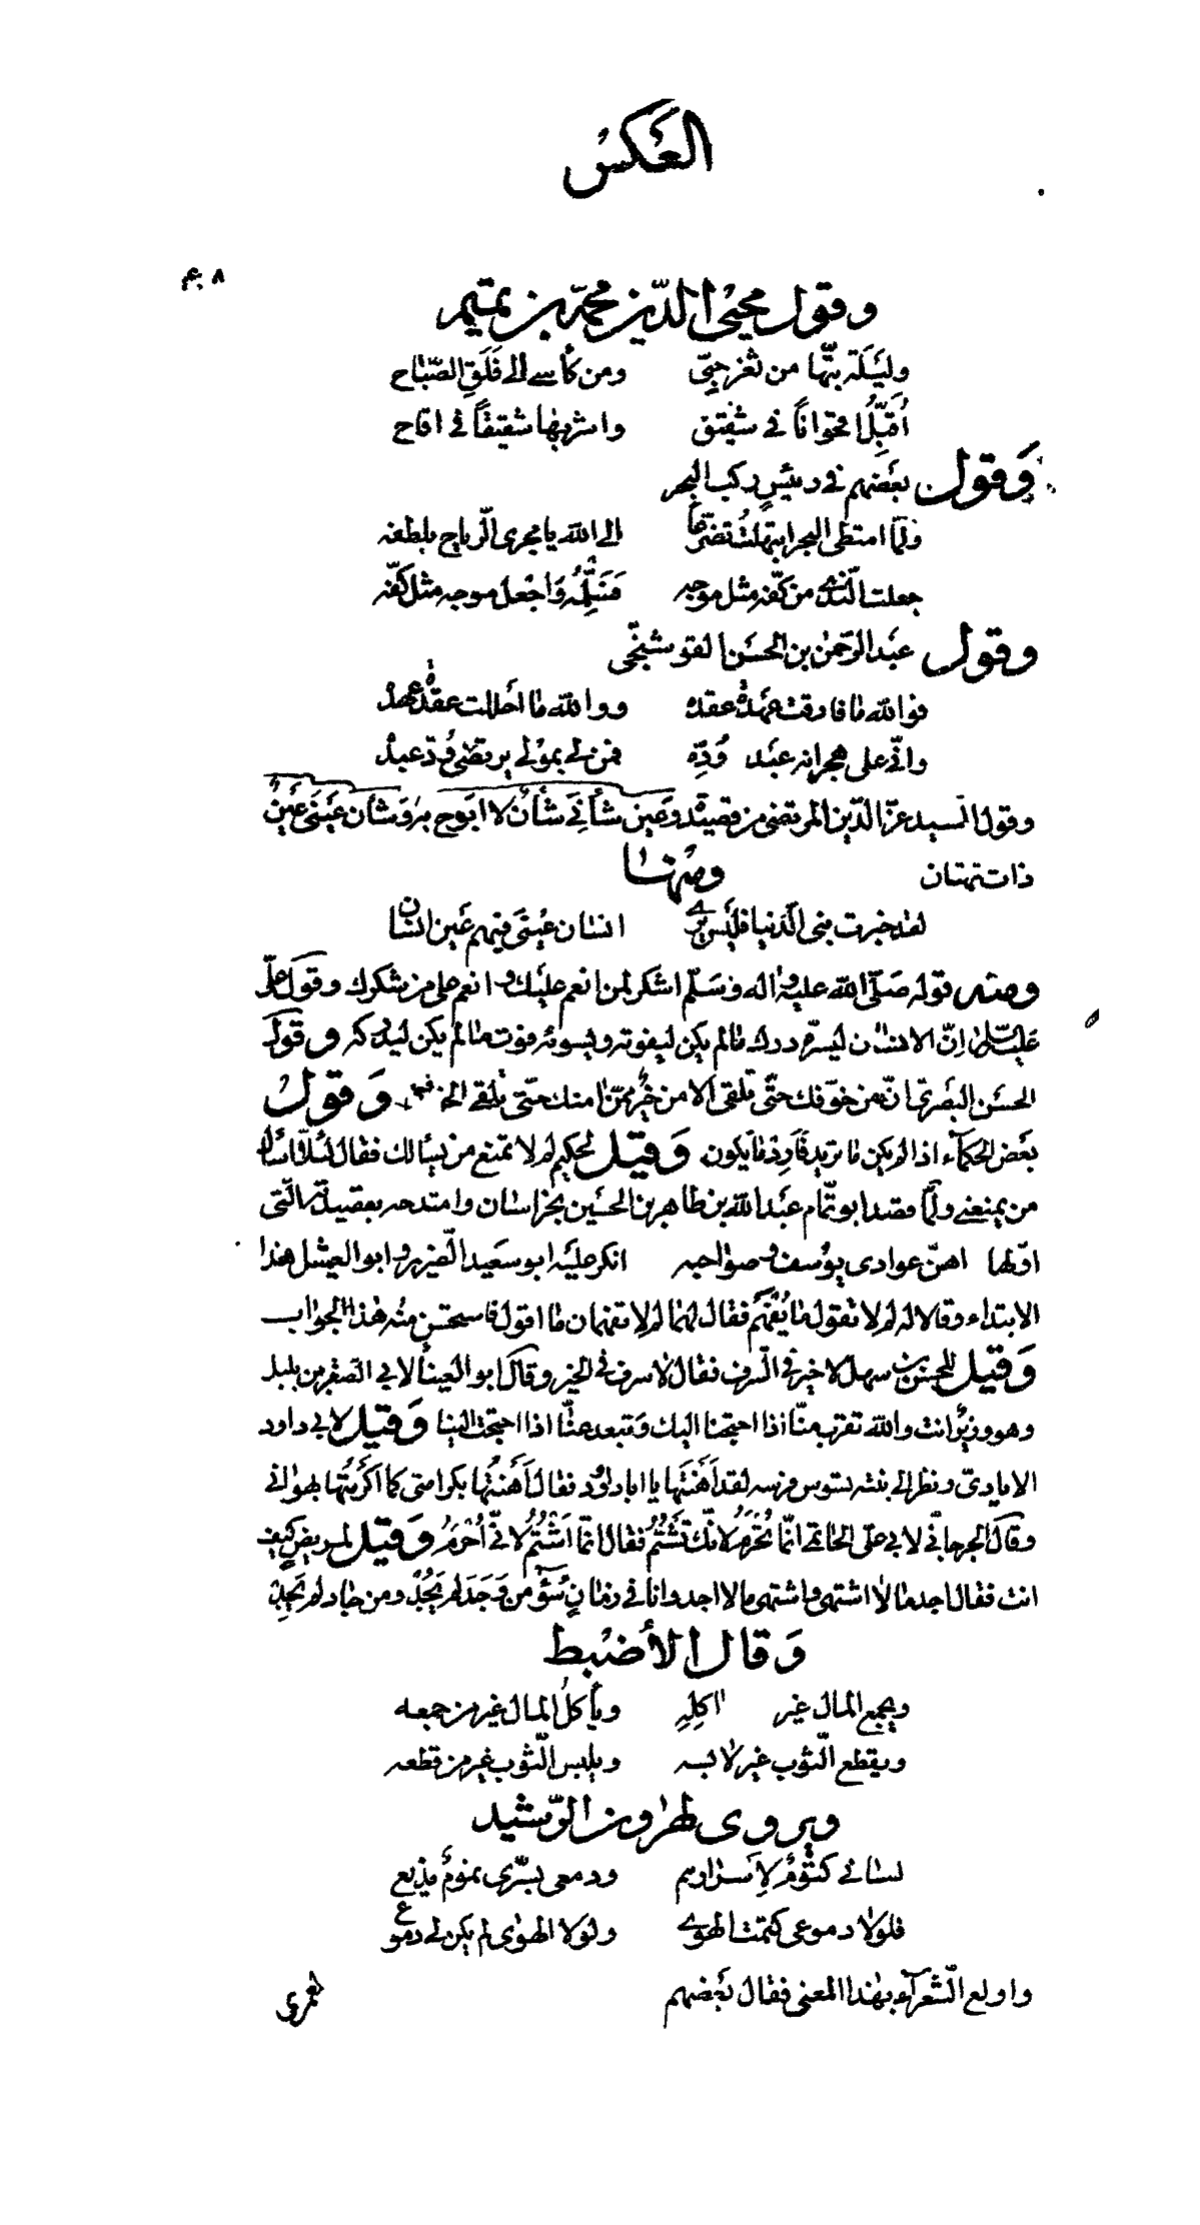 العكس
٤٠٨
وقول محيى الدّين محمّد بن تميم
وليَلَة بتّها من ثغر حِبّى ومن كأسے الى فَلَقِ الصّباح
أُقَبِّلُ اقحوانًا فى شقيق واشربها شقيقًا فى اقاح
وَقول بعَضهم فى رئيسٍ ركب البحر
ولمّا امتطى البحر ابتهلتُ تضرّعًا الى الله يا مجرى الرّياح بلطفه
جعلت النّدى من كفّه مثل موجه فَسَلِّمْهُ وَاجْعل موجه مثل كفّه
وقول عبَد الرّحمٰن بن الحسَن القوشنجى
فوالله ما فارقت عهدهُ عقده ووالله ما احللت عقدهُ عهدهُ
وانّى على هجرانه عبَد وُدِّه فمن لى بمولى يرتضى وُدّ عبدهُ
وقول السيد عزّ الدّين المرتضى من قصيدة وعين شأنى شأن لا ابَوح به وشأن عيَنى عَينٌ
ذات تهتان ومنها
لقد خبرت بنى الدّنيا فليَس يرى انسان عيَنى فيهم عَين انسان
ومنه قوله صَلّى الله عليه واله وسَلّم اشكر لمن انعم عليَك وانعم على من شكرك وقول علىّ
عليه السّلام انّ الانسٰان ليسرّه درك ما لم يكن ليفوته ويسوئه فوت ما لم يكن ليدركه وقول
الحسَن البصَرىّ انّ من خوّفك حتّى تلقى الامن خير ممّن امنك حتّى تلقى الخوف وَقول
بعَض الحكمآء اذا لم يكن ما تريد فَارِد ما يكون وَقيل لحكيم لم لا تمنع من يسَالك فقال لئلّا اسأل
من يمنعنى ولمّا قصد ابو تمّام عبَد الله بن طاهر بن الحسَين بخراسان وامتدحه بقصيدته الّتى
اوّلها اهنّ عوادى يوُسف وصواحبه انكر عليَه ابو سعَيد الضّرير وابو العميثل هذا
الابتداء وقالا له لم لا تقول ما يُفهَمُ فقال لهما لم لا تفهمان ما اقول فاستحسن منه هٰذا الجواب
وَقيل للحسن بن سهل لا خير فى السّرف فقال لا سرف فى الخير وقال ابو العينآ لابى الصّقر بن بلبل
وهو وزيرٌ انت والله تقرب منّا اذا احتجنا اليك وتبعد عنّا اذا احتجت الينا وَقيل لابى داود
الايادىّ ونظر الى بنته تسوس فرسه لقد اَهَنْتَها يا ابا داوُد فقال اَهَنْتُها بكرامتى كما اكَرَمْتُها بهوانى
وقال الجرجانىّ لابى علىّ الحاتمى انّما تُحْرَمُ لانّك تَشْتُمُ فقال انّما اَشْتُمُ لانّى اُحْرَمُ وَقيل لمريضٍ كيف
انت فقال اجد ما لا اشتهى واشتهى ما لا اجد وانا فى زمان سُوءٍ من وَجَدَ لم يَجُدْ ومن جاد لم يَجِدْ
وَقال الأضبط
ويجمع المال غير اٰكِلِهِ ويأكلُ المال غير من جمعه
ويقطع الثّوب غير لابسه ويلبس الثّوب غير من قطعه
ويروى لهٰرون الرّشيد
لسانى كتُومٌ لِأسرارهم ودمعى بسِرّى نمومٌ مذيع
فلولا دموعى كتمت الهوى ولولا الهوى لم يكن لى دموع
واولع الشّعرآء بهٰذا المعنى فقال بعَضهم
لعمرى